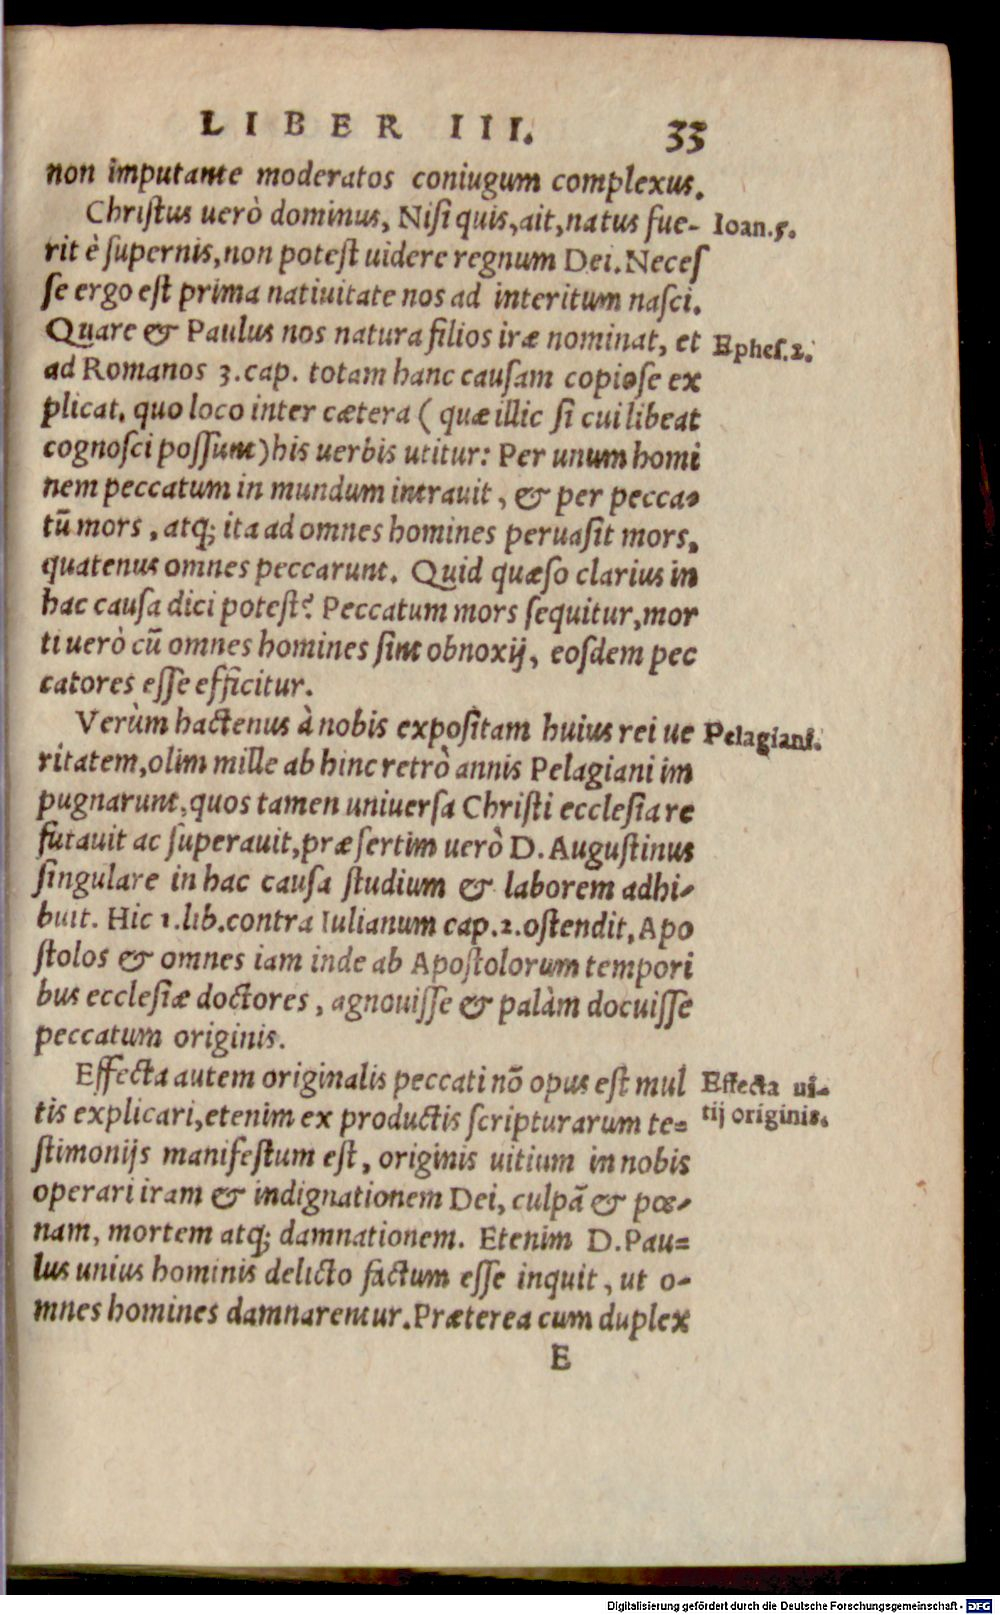 LIBER III. 33
non imputante moderatos coniugum complexus.
Christus uerò dominus, Nisi quis, ait, natus fue-
Ioan.5.
rit è supernis, non potest uidere regnum Dei. Neces
se ergo est prima natiuitate nos ad interitum nasci.
Quare & Paulus nos natura filios iræ nominat, et
Ephes.2.
ad Romanos 3.cap. totam hanc causam copiose ex
plicat. quo loco inter cætera ( quæ illic si cui libeat
cognosci possunt) his uerbis utitur: Per unum homi
nem peccatum in mundum intrauit, & per pecca-
tū mors, atq; ita ad omnes homines peruasit mors,
quatenus omnes peccarunt. Quid quæso clarius in
hac causa dici potest? Peccatum mors sequitur, mor
ti uerò cū omnes homines sint obnoxij, eosdem pec
catores esse efficitur.
Verùm hactenus à nobis expositam huius rei ue
Pelagiani.
ritatem, olim mille ab hinc retrò annis Pelagiani im
pugnarunt, quos tamen uniuersa Christi ecclesia re
futauit ac superauit, præsertim uerò D. Augustinus
singulare in hac causa studium & laborem adhi-
buit. Hic 1.lib.contra Iulianum cap.2.ostendit, Apo
stolos & omnes iam inde ab Apostolorum tempori
bus ecclesiæ doctores, agnouisse & palàm docuisse
peccatum originis.
Effecta autem originalis peccati nō opus est mul
Effecta ui-
tis explicari, etenim ex productis scripturarum te=
tij originis.
stimonijs manifestum est, originis uitium in nobis
operari iram & indignationem Dei, culpā & pœ-
nam, mortem atq; damnationem. Etenim D. Pau=
lus unius hominis delicto factum esse inquit, ut o-
mnes homines damnarentur. Præterea cum duplex
E
Digitalisierung gefördert durch die Deutsche Forschungsgemeinschaft - DFG